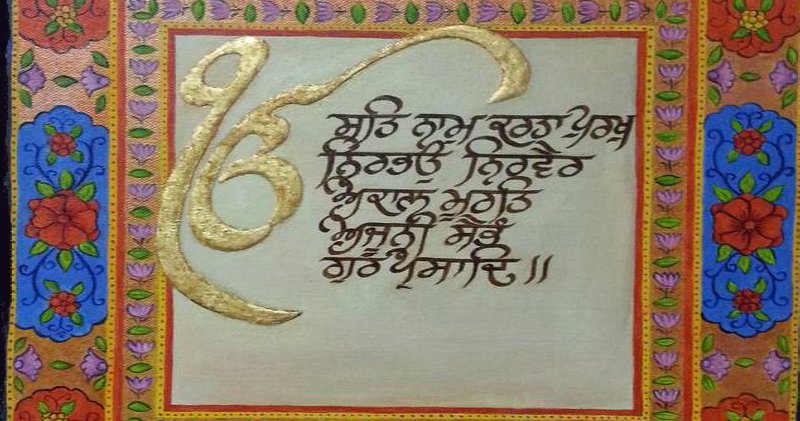 ੴ
ਸਤਿ ਨਾਮ ਕਰਤਾ ਪੁਰਖੁ
ਨਿਰਭਉ ਨਿਰਵੈਰ
ਅਕਾਲ ਮੂਰਤਿ
ਅਜੂਨੀ ਸੈਭੰ
ਗੁਰ ਪ੍ਰਸਾਦਿ ॥